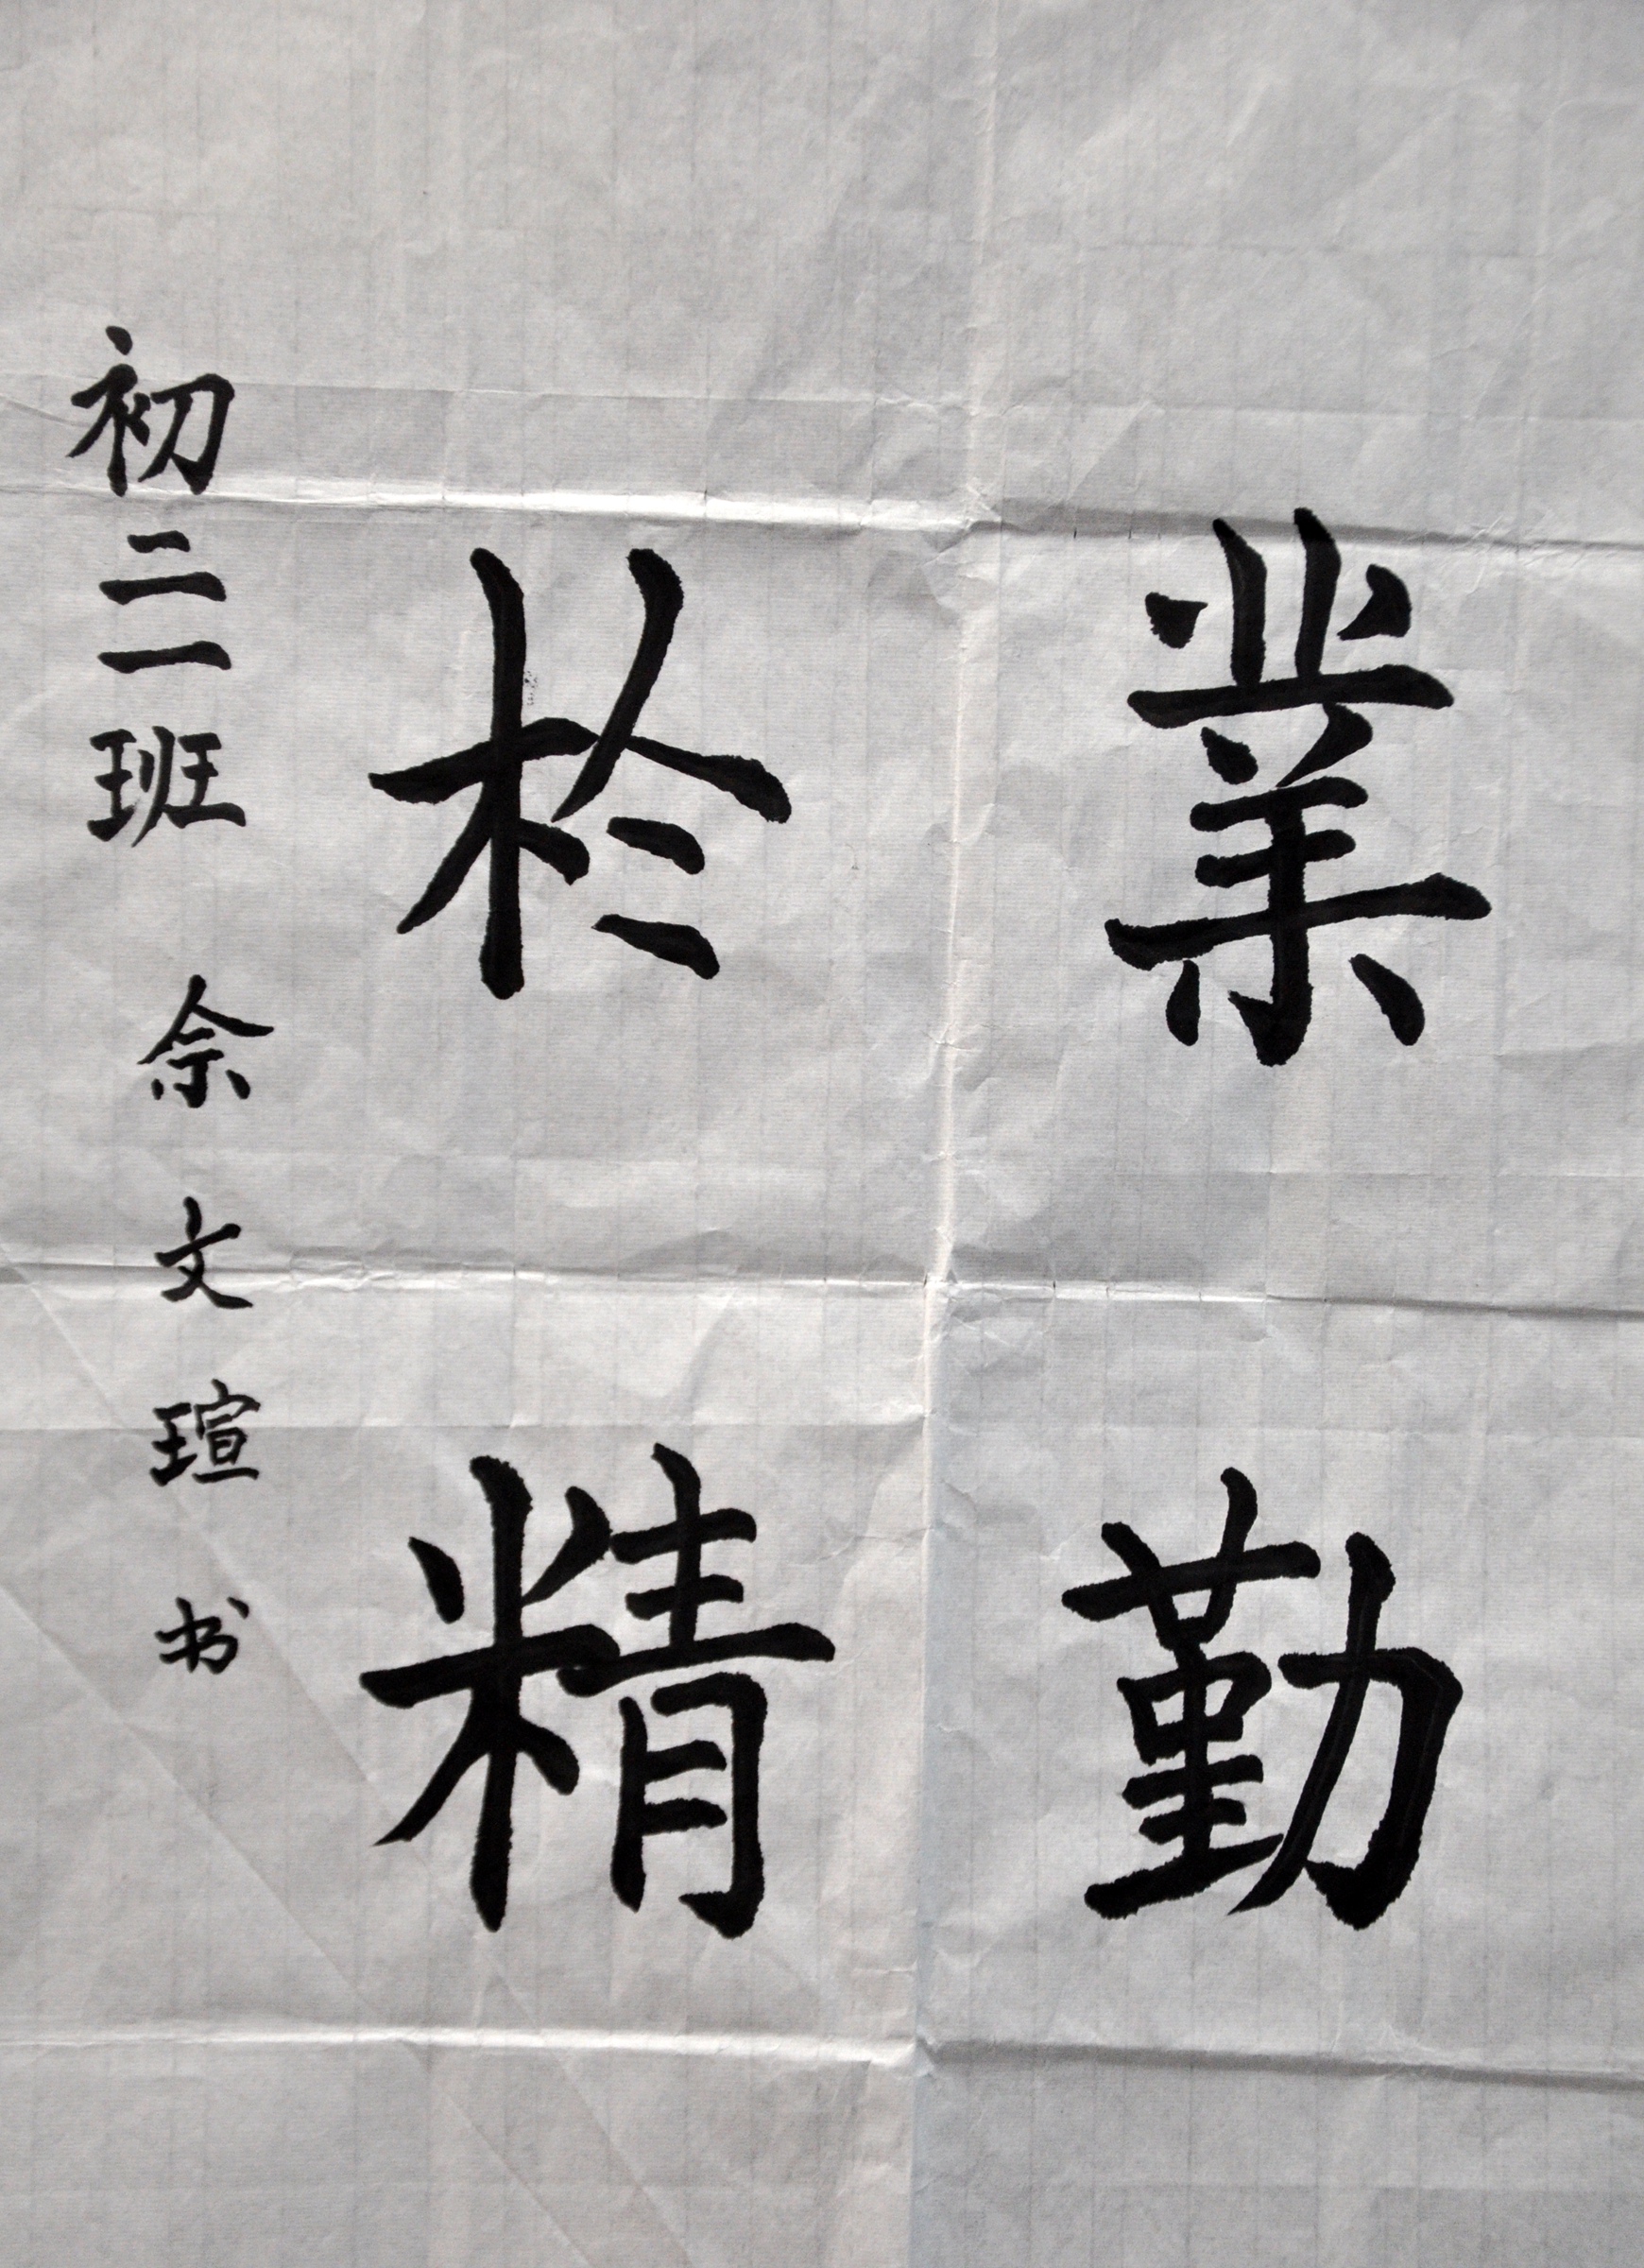 業勤
於精
初二一班 佘文瑄书